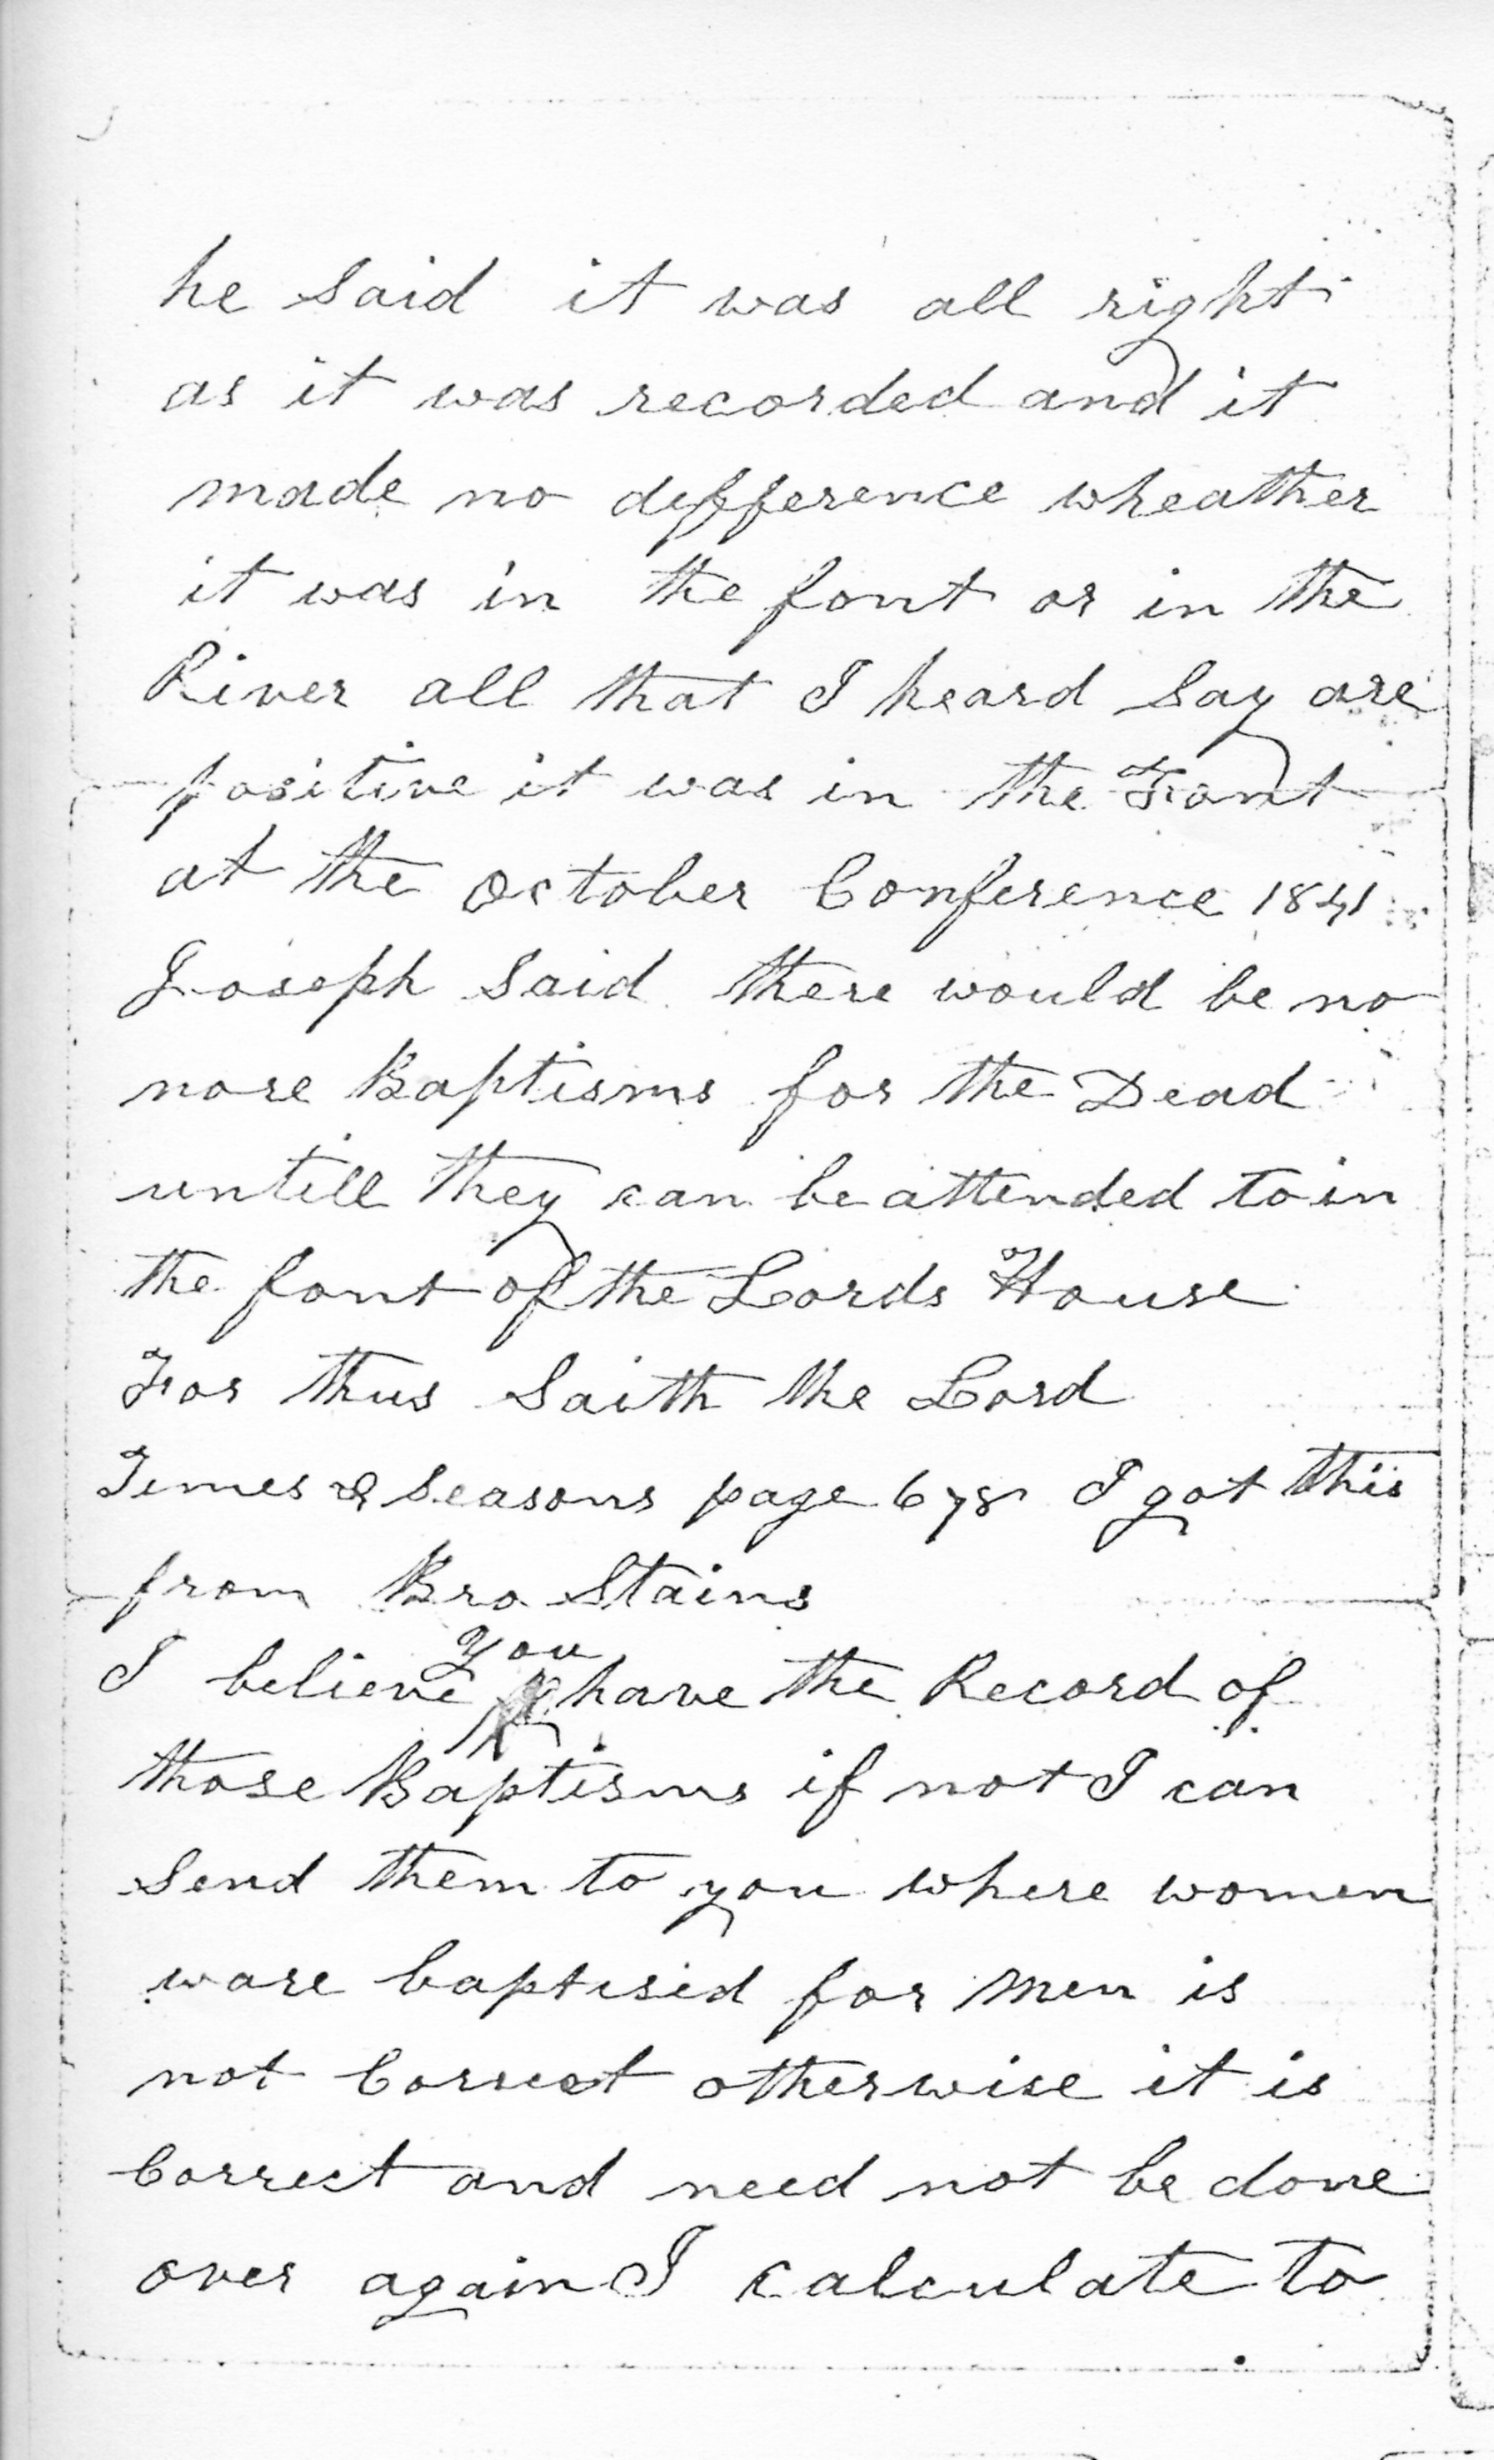 he Said it was all right
as it was recorded and it
made no defference wheather
it was in the font or in the
River all that I heard Say are
positive it was in the Font
at the October Conference 1841
Joseph Said there would be no
more Baptisms for the Dead
untill they can be attended to in
the font of the Lords House
For thus Saith the Lord
Times & Seasons page 678 I got this
from Bro Stains
I believe you have the Record of
those Baptisms if not I can
Send them to you where women
ware baptised for men is
not Correct otherwise it is
Correct and need not be done
over again I calculate to